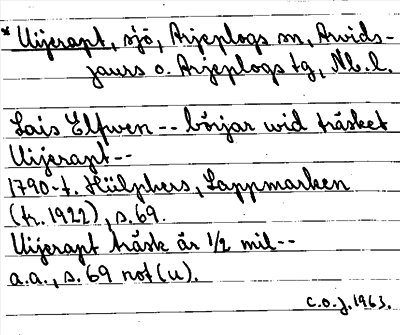 * Uijerapt, sjö, Arjeplogs sn, Arvids-
jaurs o. Arjeplogs tg, Nb. l.
Lais Elfwen -- börjar wid träsket
Uijerapt --
1790-t. Hülphers, Lappmarken
(tr. 1922), s. 69.
Uijerapt träsk är 1/2 mil --
a.a., s. 69 not (u).
C.O.J. 1963.